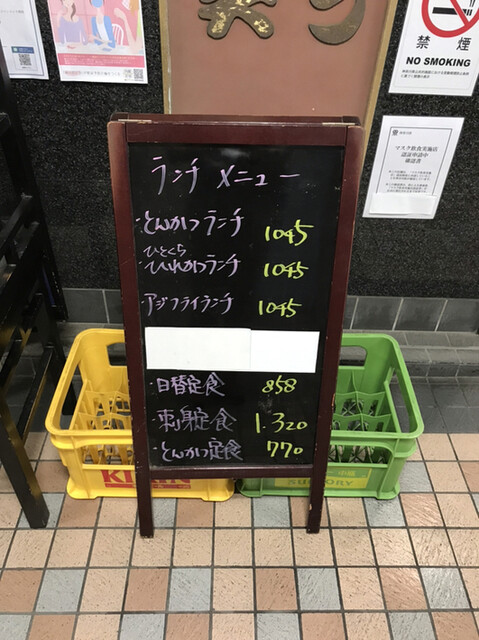 禁煙
NO SMOKING
マスク飲食実施店
認証申請中
確認書
ランチ メニュー
・とんかつランチ 1045
ひとくち
・ひれかつランチ 1045
・アジフライランチ 1045
・日替定食 858
・刺身定食 1.320
・とんかつ定食 770
KIRIN
SUNTORY